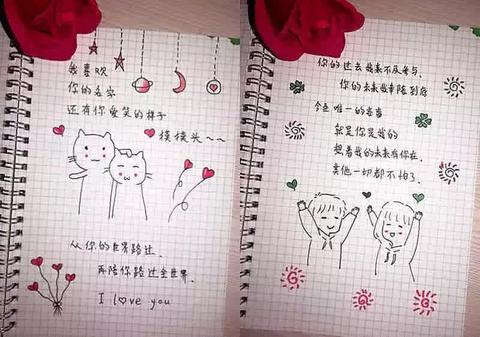 我喜欢
你的名字
还有你爱笑的样子
摸摸头~~
从你的世界路过,
再陪你路过全世界.
I l♡ve you
你的过去我来不及参与,
你的未来我奉陪到底
今生唯一的
就是你是我的
想着我的未来有你在,
其他一切都不怕了.